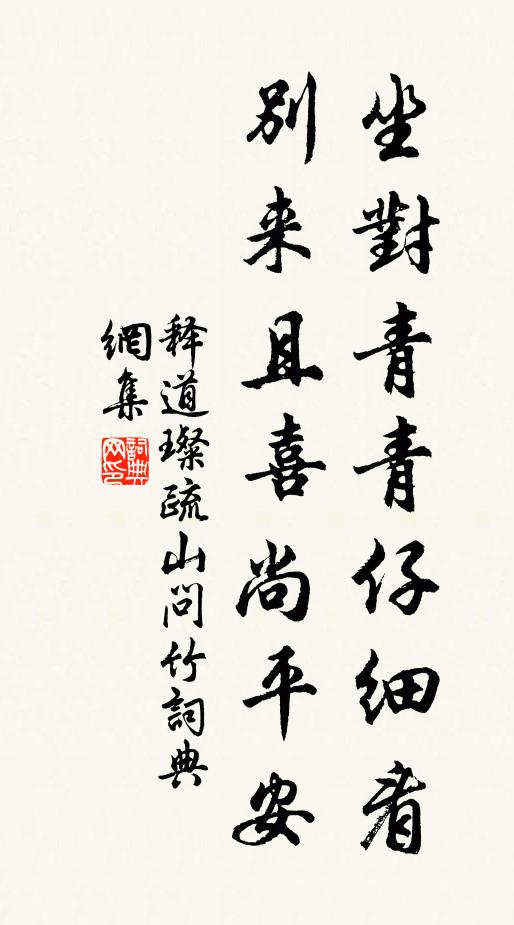 坐對青青仔細看
别来且喜尚平安
释道璨疏山问竹詞典
網集
詞典
网印